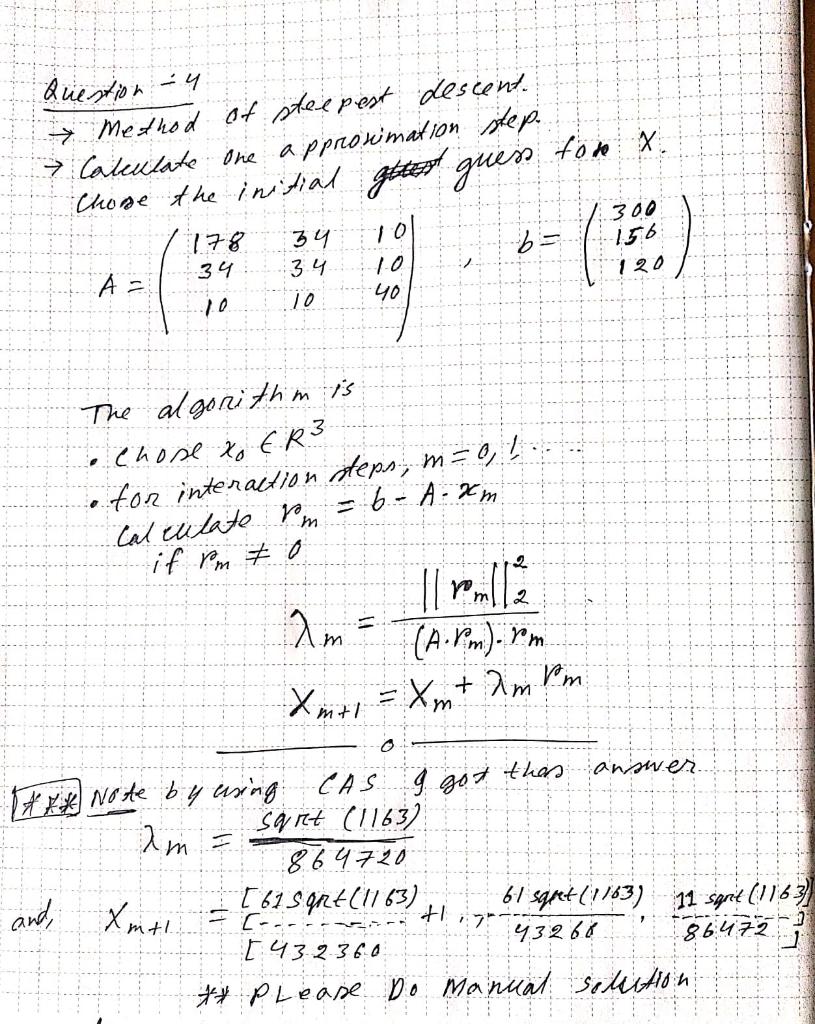 Question - 4
→ Method of steepest descent.
→ Calculate one approximation step.
Chose the initial guess for X.
A = ( 178 34 10
34 34 10
10 10 40 ) , b = ( 300
156
120 )
The algorithm is
• chose x₀ ∈ R³
• for interaction steps, m = 0, 1 ....
Calculate rₘ = b - A - xₘ
if rₘ ≠ 0
λₘ = ||rₘ||₂² / (A.rₘ).rₘ
Xₘ₊₁ = Xₘ + λₘ rₘ
o
*** Note by using CAS I got thes answer
λₘ = sqrt (1163) / 864720
and, Xₘ₊₁ = [61 sqrt(1163)
[- - - - - - - +1 , , 61 sqrt(1163) / 43268 , 11 sqrt(1163)] / 86472 ]
[432360
** PLease Do Manual solution